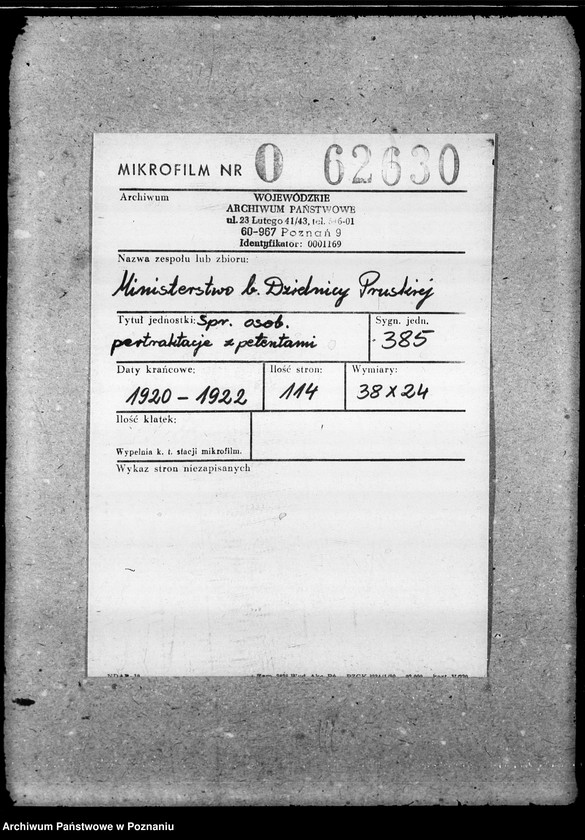 MIKROFILM NR O 62630
Archiwum
WOJEWÓDZKIE
ARCHIWUM PAŃSTWOWE
ul. 23 Lutego 41/43, tel. 6-01
60-967 Poznań 9
Identyfikator: 0001169
Nazwa zespołu lub zbioru:
Ministerstwo b. Dzielnicy Pruskiej
Tytuł jednostki: Spr. osob.
pertraktacje z petentami
Sygn. jedn.
385
Daty krańcowe: Ilość stron: Wymiary:
1920 – 1922 114 38 x 24
Ilość klatek:
Wypełnia k. t. stacji mikrofilm.
Wykaz stron niezapisanych
Archiwum Państwowe w Poznaniu